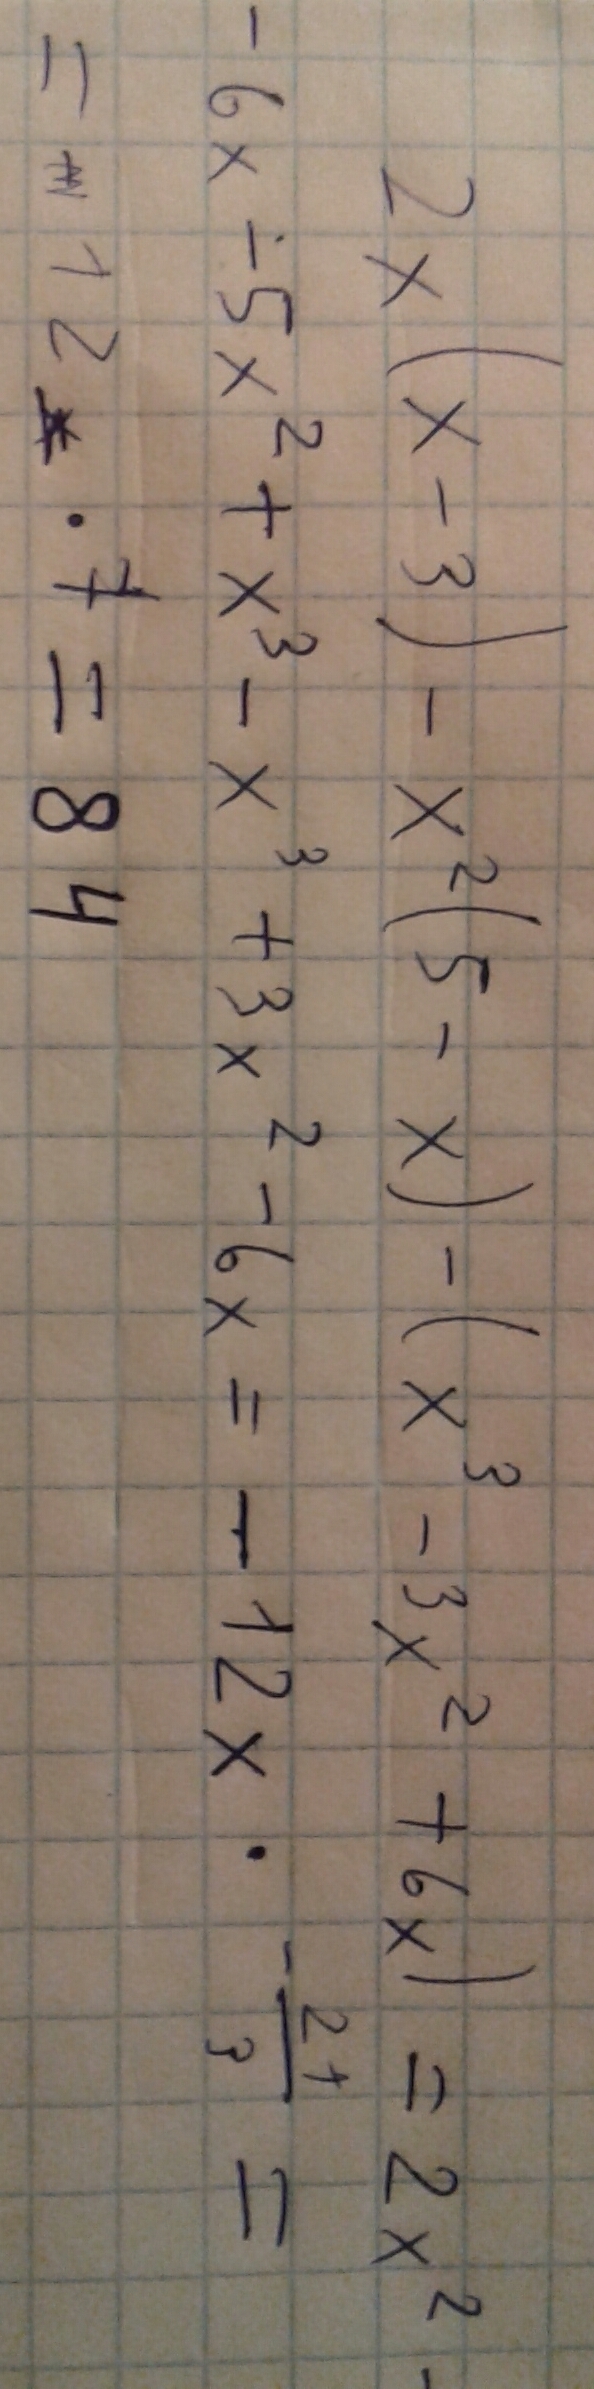 2x(x-3)-x²(5-x)-(x³-3x²+6x)=2x²-
-6x-5x²+x³-x³+3x²-6x=-12x·-21/3=
=-12·7=84